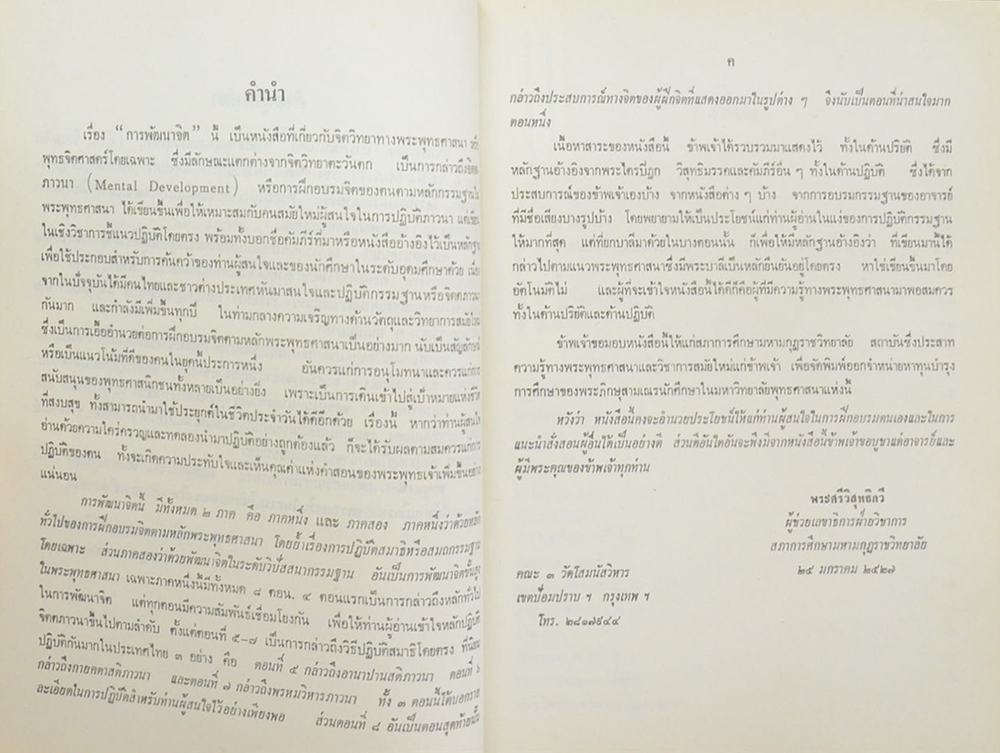 คำนำ
เรื่อง “การพัฒนาจิต” นี้ เป็นหนังสือที่เกี่ยวกับจิตวิทยาทางพระพุทธศาสนา
พุทธจิตศาสตร์โดยเฉพาะ ซึ่งมีลักษณะแตกต่างจากจิตวิทยาตะวันตก เป็นการกล่าวถึง
ภาวนา (Mental Development) หรือการฝึกอบรมจิตของคนตามหลักกรรมฐาน
พระพุทธศาสนา ได้เขียนขึ้นเพื่อให้เหมาะสมกับคนสมัยใหม่ผู้สนใจในการปฏิบัติภาวนา
ในเชิงวิชาการชี้แนวปฏิบัติโดยตรง พร้อมทั้งบอกชื่อคัมภีร์ที่มาหรือหนังสืออ้างอิงไว้เป็นหลักฐาน
เพื่อใช้ประกอบสำหรับการค้นคว้าของท่านผู้สนใจและของนักศึกษาในระดับอุดมศึกษาด้วย
จากในปัจจุบันได้มีคนไทยและชาวต่างประเทศหันมาสนใจและปฏิบัติกรรมฐานหรือจิตตภาวนา
กันมาก และกำลังมีเพิ่มขึ้นทุกปี ในท่ามกลางความเจริญทางด้านวัตถุและวิทยาการสมัยใหม่
ซึ่งเป็นการเอื้ออำนวยต่อการฝึกอบรมจิตตามหลักพระพุทธศาสนาเป็นอย่างมาก นับเป็นสัญลักษณ์
หรือเป็นแนวโน้มที่ดีของคนในยุคนี้ประการหนึ่ง อันควรแก่การอนุโมทนาและควรแก่การ
สนับสนุนของพุทธศาสนิกชนทั้งหลายเป็นอย่างยิ่ง เพราะเป็นการเดินเข้าไปสู่เป้าหมายแห่งชีวิต
ที่สงบสุข ทั้งสามารถนำมาใช้ประยุกต์ในชีวิตประจำวันได้ดีอีกด้วย เรื่องนี้ หากว่าท่านผู้สนใจ
อ่านด้วยความใคร่ครวญและทดลองนำมาปฏิบัติอย่างถูกต้องแล้ว ก็จะได้รับผลตามสมควรแก่การ
ปฏิบัติของตน ทั้งจะเกิดความประทับใจและเห็นคุณค่าแห่งคำสอนของพระพุทธเจ้าเพิ่มขึ้นอย่าง
แน่นอน
การพัฒนาจิตนี้ มีทั้งหมด ๒ ภาค คือ ภาคหนึ่ง และ ภาคสอง ภาคหนึ่งว่าด้วยหลัก
ทั่วไปของการฝึกอบรมจิตตามหลักพระพุทธศาสนา โดยย้ำเรื่องการปฏิบัติสมาธิหรือสมถกรรมฐาน
โดยเฉพาะ ส่วนภาคสองว่าด้วยพัฒนาจิตในระดับวิปัสสนากรรมฐาน อันเป็นการพัฒนาจิตขั้นสูง
ในพระพุทธศาสนา เฉพาะภาคหนึ่งนี้มีทั้งหมด ๘ ตอน. ๔ ตอนแรกเป็นการกล่าวถึงหลักทั่วไป
ในการพัฒนาจิต แต่ทุกตอนมีความสัมพันธ์เชื่อมโยงกัน เพื่อให้ท่านผู้อ่านเข้าใจหลักปฏิบัติ
จิตตภาวนาขึ้นไปตามลำดับ ตั้งแต่ตอนที่ ๕-๗ เป็นการกล่าวถึงวิธีปฏิบัติสมาธิโดยตรง ที่นิยม
ปฏิบัติกันมากในประเทศไทย ๓ อย่าง คือ ตอนที่ ๕ กล่าวถึงอานาปานสติภาวนา ตอนที่ ๖
กล่าวถึงกายคตาสติภาวนา และตอนที่ ๗ กล่าวถึงพรหมวิหารภาวนา ทั้ง ๓ ตอนนี้ได้บอกราย
ละเอียดในการปฏิบัติสำหรับท่านผู้สนใจไว้อย่างเพียงพอ ส่วนตอนที่ ๘ อันเป็นตอนสุดท้ายนั้น
ค
กล่าวถึงประสบการณ์ทางจิตของผู้ฝึกจิตที่แสดงออกมาในรูปต่าง ๆ จึงนับเป็นตอนที่น่าสนใจมาก
ตอนหนึ่ง
เนื้อหาสาระของหนังสือนี้ ข้าพเจ้าได้รวบรวมมาแสดงไว้ ทั้งในด้านปริยัติ ซึ่งมี
หลักฐานอ้างอิงจากพระไตรปิฎก วิสุทธิมรรคและคัมภีร์อื่น ๆ ทั้งในด้านปฏิบัติ ซึ่งได้จาก
ประสบการณ์ของข้าพเจ้าเองบ้าง จากหนังสือต่าง ๆ บ้าง จากการอบรมกรรมฐานของอาจารย์
ที่มีชื่อเสียงบางรูปบ้าง โดยพยายามให้เป็นประโยชน์แก่ท่านผู้อ่านในแง่ของการปฏิบัติกรรมฐาน
ให้มากที่สุด แต่ที่ยกบาลีมาด้วยในบางตอนนั้น ก็เพื่อให้มีหลักฐานอ้างอิงว่า ที่เขียนมานี้ได้
กล่าวไปตามแนวพระพุทธศาสนาซึ่งมีพระบาลีเป็นหลักยืนยันอยู่โดยตรง หาใช่เขียนขึ้นมาโดย
อัตโนมัติไม่ และผู้ที่จะเข้าใจหนังสือนี้ได้ดีก็คือผู้ที่มีความรู้ทางพระพุทธศาสนามาพอสมควร
ทั้งในด้านปริยัติและด้านปฏิบัติ
ข้าพเจ้าขอมอบหนังสือนี้ให้แก่สภาการศึกษามหามกุฏราชวิทยาลัย สถาบันซึ่งประสาท
ความรู้ทางพระพุทธศาสนาและวิชาการสมัยใหม่แก่ข้าพเจ้า เพื่อจัดพิมพ์ออกจำหน่ายหาทุนบำรุง
การศึกษาของพระภิกษุสามเณรนักศึกษาในมหาวิทยาลัยพุทธศาสนาแห่งนี้
หวังว่า หนังสือนี้คงจะอำนวยประโยชน์ให้แก่ท่านผู้สนใจในการฝึกอบรมตนเองและในการ
แนะนำสั่งสอนผู้อื่นได้เป็นอย่างดี ส่วนดีอันใดอันจะพึงมีจากหนังสือนี้ข้าพเจ้าขอบูชาแด่อาจารย์และ
ผู้มีพระคุณของข้าพเจ้าทุกท่าน
พระศรีวิสุทธิกวี
ผู้ช่วยเลขาธิการฝ่ายวิชาการ
สภาการศึกษามหามกุฏราชวิทยาลัย
๒๕ มกราคม ๒๕๒๗
คณะ ๓ วัดโสมนัสวิหาร
เขตป้อมปราบ ฯ กรุงเทพ ฯ
โทร. ๒๘๑๗๙๔๔